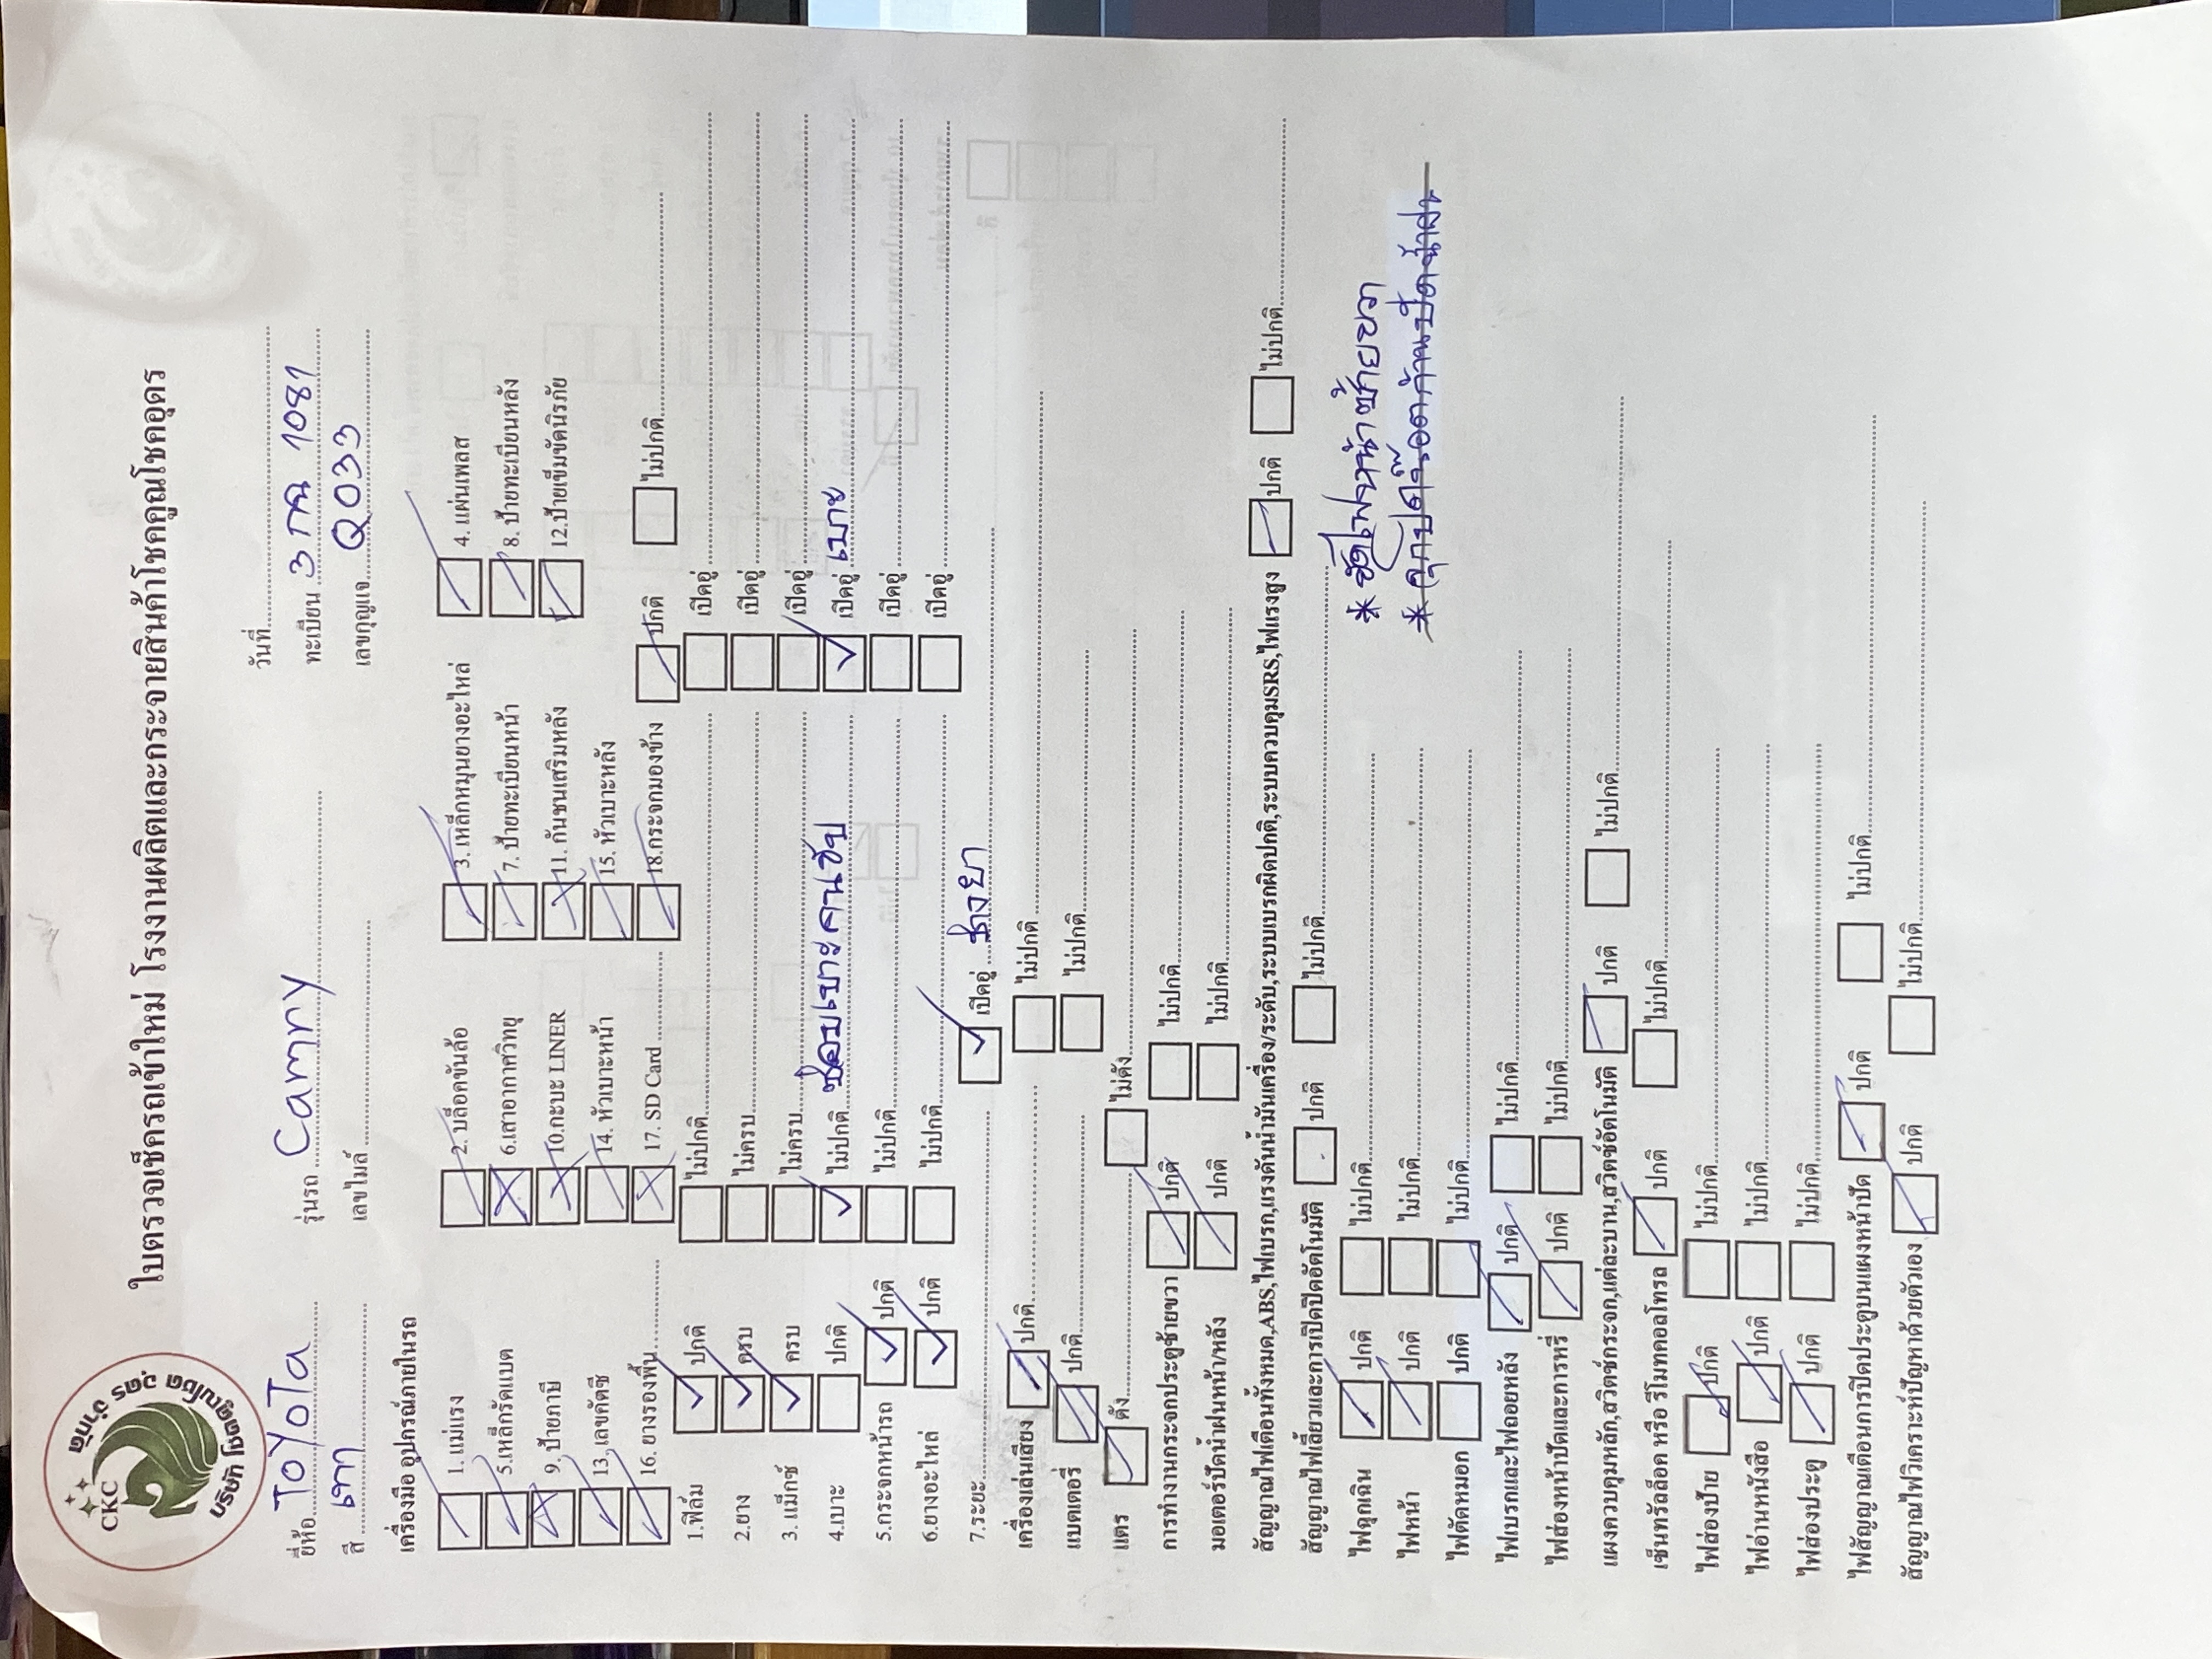 บริษัท โชคคูณโชค อุดร จำกัด
CKC
ใบตรวจเช็ครถเข้าใหม่ โรงงานผลิตและกระจายสินค้าโชคคูณโชคอุดร
วันที่
ยี่ห้อ TOYOTA รุ่นรถ Camry ทะเบียน 3 กฌ 1081
สี เทา เลขไมล์ เลขกุญแจ Q033
เครื่องมือ อุปกรณ์ภายในรถ
1. แม่แรง 2. บล็อคขันล้อ 3. เหล็กหมุนยางอะไหล่ 4. แผ่นเพลส
5. เหล็กรัดแบต 6. เสาอากาศวิทยุ 7. ป้ายทะเบียนหน้า 8. ป้ายทะเบียนหลัง
9. ป้ายภาษี 10. กะบะ LINER 11. กันชนเสริมหลัง 12. ป้ายเข็มขัดนิรภัย
13. เลขคัตซี 14. หัวเบาะหน้า 15. หัวเบาะหลัง
16. ยางรองพื้น 17. SD Card 18. กระจกมองข้าง ปกติ ไม่ปกติ
1. ฟิล์ม ปกติ ไม่ปกติ เปิดอู่
2. ยาง ครบ ไม่ครบ เปิดอู่
3. แม็กซ์ ครบ ไม่ครบ เปิดอู่
4. เบาะ ปกติ ไม่ปกติ ซ่อมเบาะคนขับ เปิดอู่ เบาะ
5. กระจกหน้ารถ ปกติ ไม่ปกติ เปิดอู่
6. ยางอะไหล่ ปกติ ไม่ปกติ เปิดอู่
7. ระยะ เปิดอู่ ช่างยา
เครื่องเล่นเสียง ปกติ ไม่ปกติ
แบตเตอรี่ ปกติ ไม่ปกติ
แตร ดัง ไม่ดัง
การทำงานกระจกประตูซ้ายขวา ปกติ ไม่ปกติ
มอเตอร์ปัดน้ำฝนหน้า/หลัง ปกติ ไม่ปกติ
สัญญาณไฟเตือนทั้งหมด,ABS,ไฟเบรก,แรงดันน้ำมันเครื่อง/ระดับ,ระบบเบรกผิดปกติ,ระบบควบคุมSRS,ไฟแรงสูง ปกติ ไม่ปกติ
สัญญาณไฟเลี้ยวและการเปิดปิดอัตโนมัติ ปกติ ไม่ปกติ
ไฟฉุกเฉิน ปกติ ไม่ปกติ * ขัดไฟหน้าซ้ายขวา
ไฟหน้า ปกติ ไม่ปกติ
ไฟตัดหมอก ปกติ ไม่ปกติ
ไฟเบรกและไฟถอยหลัง ปกติ ไม่ปกติ
ไฟส่องหน้าปัดและการหรี่ ปกติ ไม่ปกติ
แผงควบคุมหลัก,สวิตช์กระจก,แต่ละบาน,สวิตช์อัตโนมัติ ปกติ ไม่ปกติ
เซ็นทรัลล็อค หรือ รีโมทคอลโทรล ปกติ ไม่ปกติ
ไฟส่องป้าย ปกติ ไม่ปกติ
ไฟอ่านหนังสือ ปกติ ไม่ปกติ
ไฟส่องประตู ปกติ ไม่ปกติ
ไฟสัญญาณเตือนการปิดประตูบนแผงหน้าปัด ปกติ ไม่ปกติ
สัญญาณไฟวิเคราะห์ปัญหาด้วยตัวเอง ปกติ ไม่ปกติ